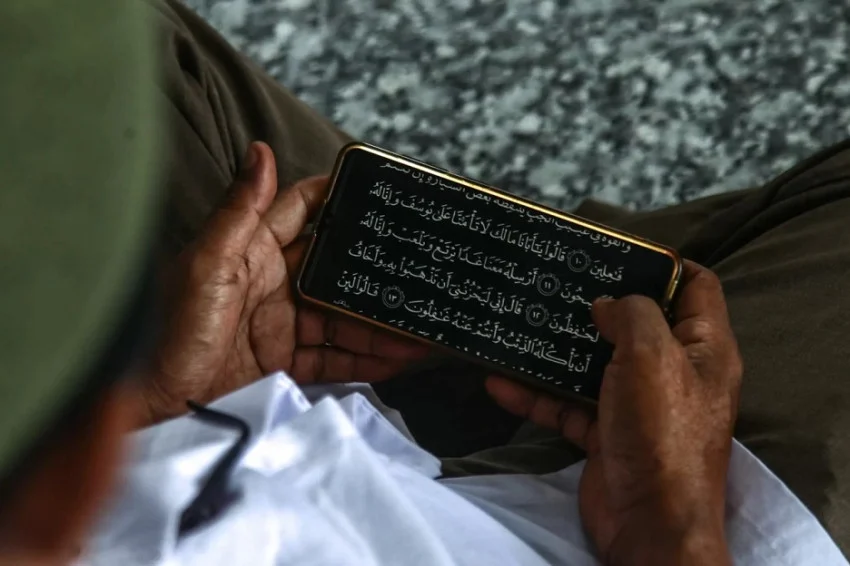 وَأَلۡقُوهُ فِي غَيَٰبَتِ ٱلۡجُبِّ يَلۡتَقِطۡهُ بَعۡضُ ٱلسَّيَّارَةِ إِن كُنتُمۡ
فَٰعِلِينَ ١٠ قَالُواْ يَٰٓأَبَانَا مَالَكَ لَا تَأۡمَ۬نَّا عَلَىٰ يُوسُفَ وَإِنَّا لَهُۥ
لَنَٰصِحُونَ ١١ أَرۡسِلۡهُ مَعَنَا غَدٗا يَرۡتَعۡ وَيَلۡعَبۡ وَإِنَّا لَهُۥ
لَحَٰفِظُونَ ١٢ قَالَ إِنِّي لَيَحۡزُنُنِيٓ أَن تَذۡهَبُواْ بِهِۦ وَأَخَافُ
أَن يَأۡكُلَهُ ٱلذِّئۡبُ وَأَنتُمۡ عَنۡهُ غَٰفِلُونَ ١٣ قَالُواْ لَئِنۡ